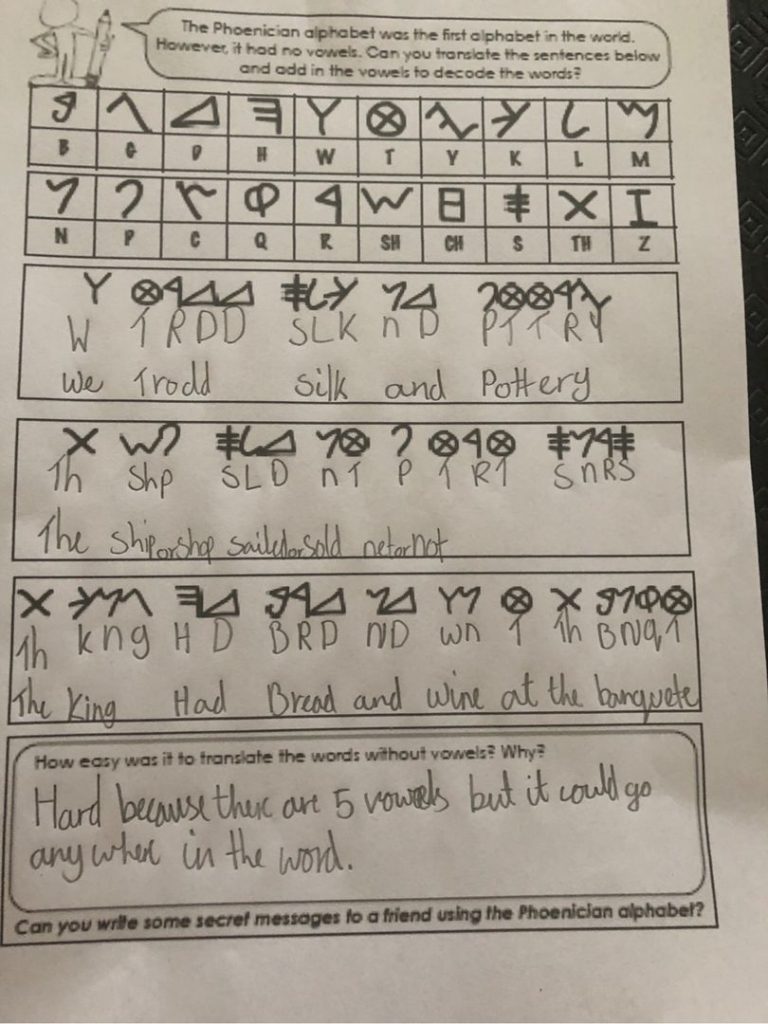 The Phoenician alphabet was the first alphabet in the world.
However, it had no vowels. Can you translate the sentences below
and add in the vowels to decode the words?
𐤁 𐤂 𐤃 𐤄 𐤅 𐤈 𐤉 𐤊 𐤋 𐤌
B G D H W T Y K L M
𐤍 𐤐 𐤂 𐤒 𐤓 𐤔 𐤇 𐤎 𐤕 𐤆
N P C Q R SH CH S TH Z
𐤅 𐤈𐤓𐤃𐤃 𐤎𐤋𐤊 𐤍𐤃 𐤐𐤈𐤈𐤓𐤉
W TRDD SLK nD PTTRY
we Trodd silk and Pottery
𐤕 𐤔𐤐 𐤎𐤋𐤃 𐤍𐤈 𐤐 𐤈𐤓𐤈 𐤎𐤍𐤓𐤎
Th Shp SLD nT P TRT SnRS
The shiporshop sailedorsold netornot
𐤕 𐤊𐤍𐤂 𐤄𐤃 𐤁𐤓𐤃 𐤍𐤃 𐤅𐤍 𐤈 𐤕 𐤁𐤍𐤒𐤈
Th kng HD BRD ND wn T Th BNqT
The King Had Bread and wine at the banquete
How easy was it to translate the words without vowels? Why?
Hard because there are 5 vowels but it could go
anywhere in the word.
Can you write some secret messages to a friend using the Phoenician alphabet?